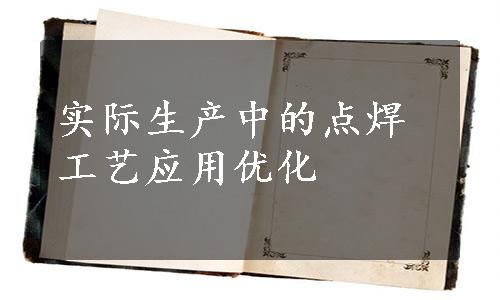 实际生产中的点焊
工艺应用优化